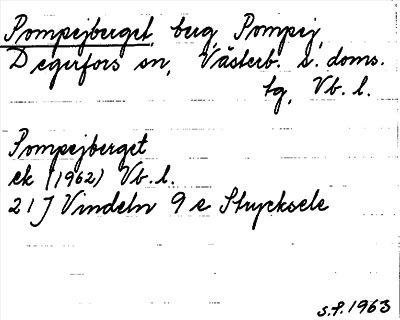 Pompejberget, berg, Pompej,
Degerfors sn, Västerb. s. doms.
tg, Vb. l.
Pompejberget
ek (1962) Vb. l.
21J Vindeln 9 e Strycksele
s.f. 1963